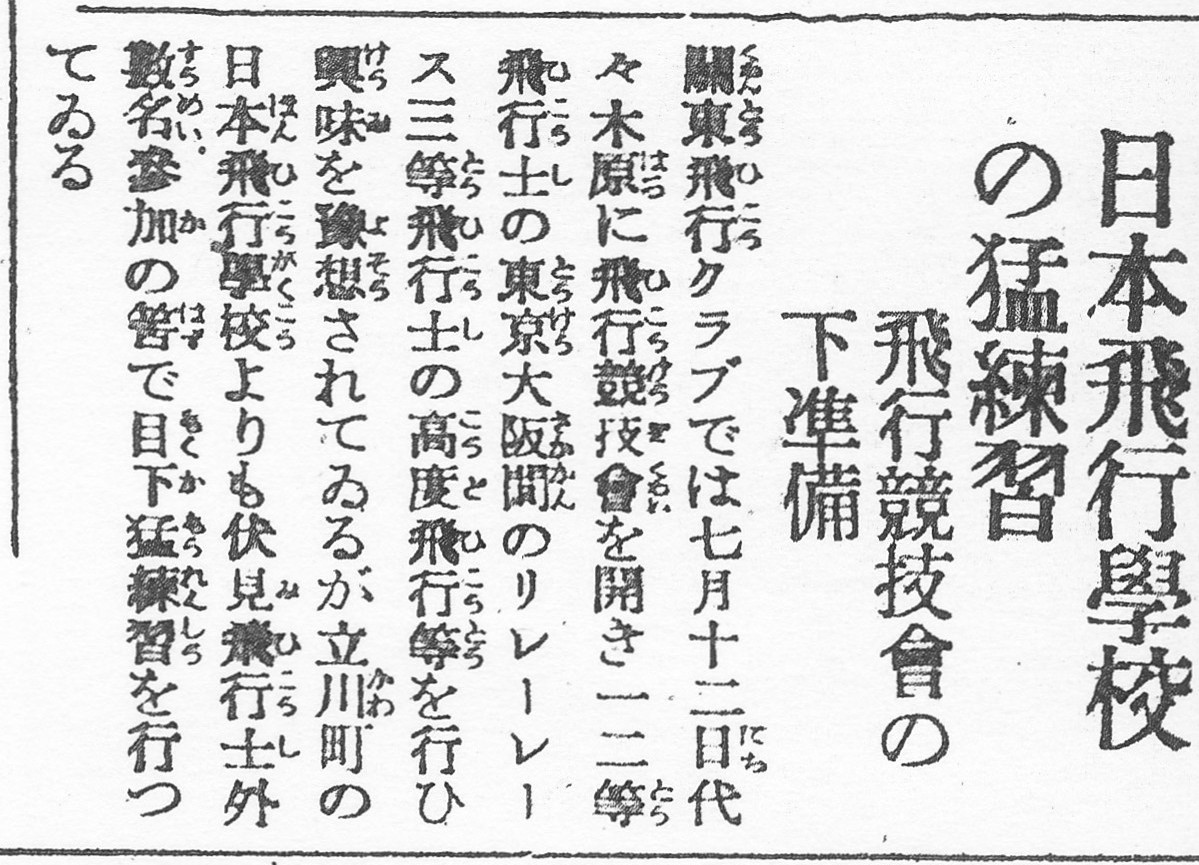 日本飛行學校
の猛練習
飛行競技會の
下準備
關東飛行クラブでは七月十二日代
々木原に飛行競技會を開き一二等
飛行士の東京大阪間のリレーレー
ス三等飛行士の高度飛行等を行ひ
興味を豫想されてゐるが立川町の
日本飛行學校よりも伏見飛行士外
數名參加の筈で目下猛練習を行つ
てゐる